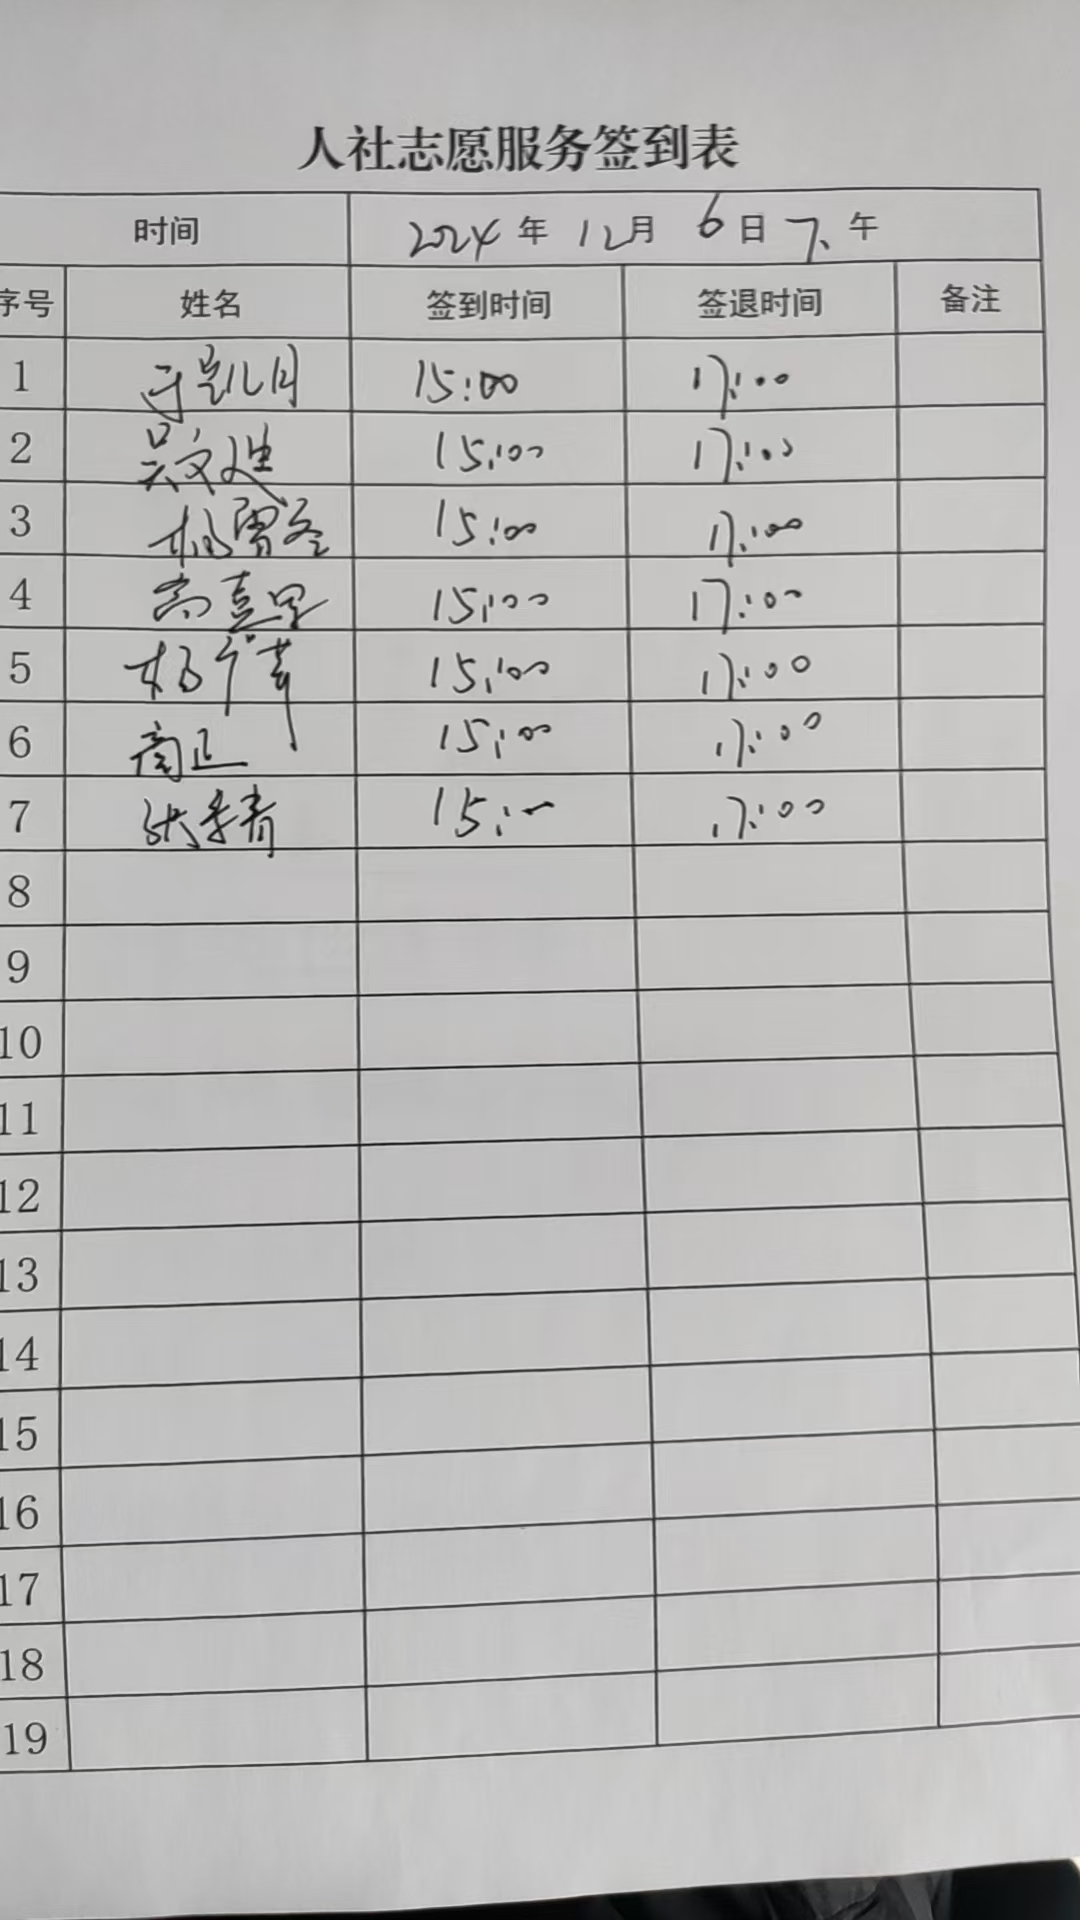 人社志愿服务签到表
时间 2024年 12月 6日 下午
序号 姓名 签到时间 签退时间 备注
1 于凯月 15:00 17:00
2 吴文迪 15:00 17:00
3 杨 15:00 17:00
4 高 15:00 17:00
5 杨 15:00 17:00
6 商正 15:00 17:00
7 张季青 15:00 17:00
8
9
10
11
12
13
14
15
16
17
18
19